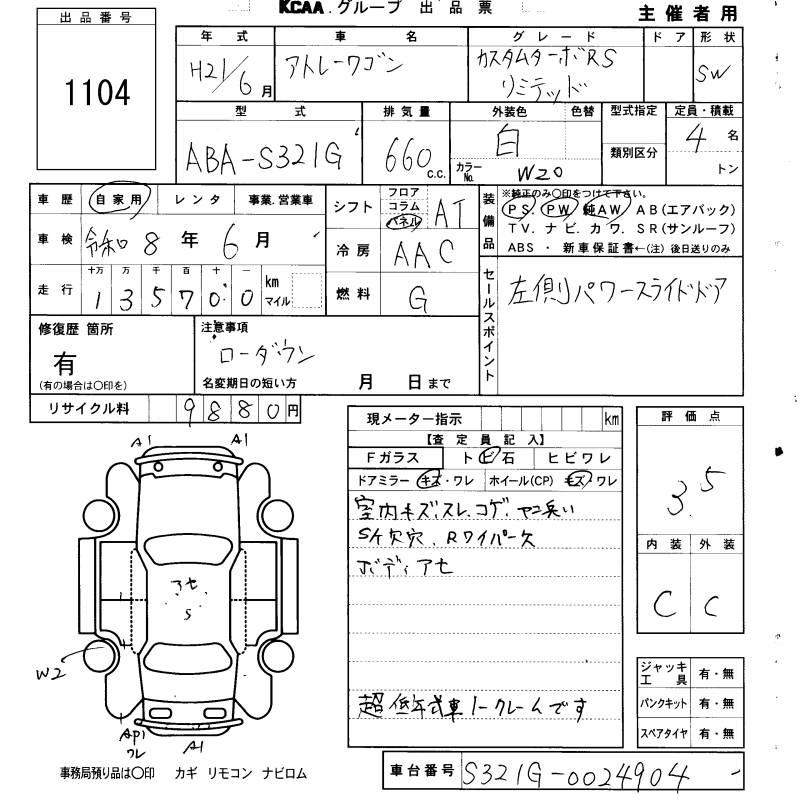 KCAA.グループ 出品票
主催者用
出品番号
1104
年式 車名 グレード ドア 形状
H21/6月 アトレーワゴン カスタムターボRS リミテッド SW
型式 排気量 外装色 色替 型式指定 定員・積載
ABA-S321G 660 c.c. 白 カラーNo. W20 類別区分 4名 トン
車歴 自家用 レンタ 事業.営業車
車検 令和8年6月
走行 十万 万 千 百 十 一
135700 km マイル
シフト フロア コラム パネル AT
冷房 AAC
燃料 G
装備品 ※純正のみ〇印をつけて下さい。
PS. PW. 純AW. AB(エアバック)
TV.ナビ.カワ.SR(サンルーフ)
ABS・新車保証書←(注)後日送りのみ
セールスポイント
左側パワースライドドア
修復歴 箇所
有
(有の場合は〇印を)
注意事項
ローダウン
名変期日の短い方 月 日まで
リサイクル料 9880円
現メーター指示 km
【査定員記入】
Fガラス トビ石 ヒビワレ
ドアミラー キズ・ワレ ホイール(CP) キズ・ワレ
室内キズ.スレ.コゲ.ヤニ臭い
SH欠穴.Rワイパー欠
ボディアセ
超低年式車ノークレームです
評価点
3.5
内装 外装
C C
ジャッキ工具 有・無
パンクキット 有・無
スペアタイヤ 有・無
A1 A1
アセ
S
W2
AP1
ワレ
A1
事務局預り品は〇印 カギ リモコン ナビロム
車台番号 S321G-0024904